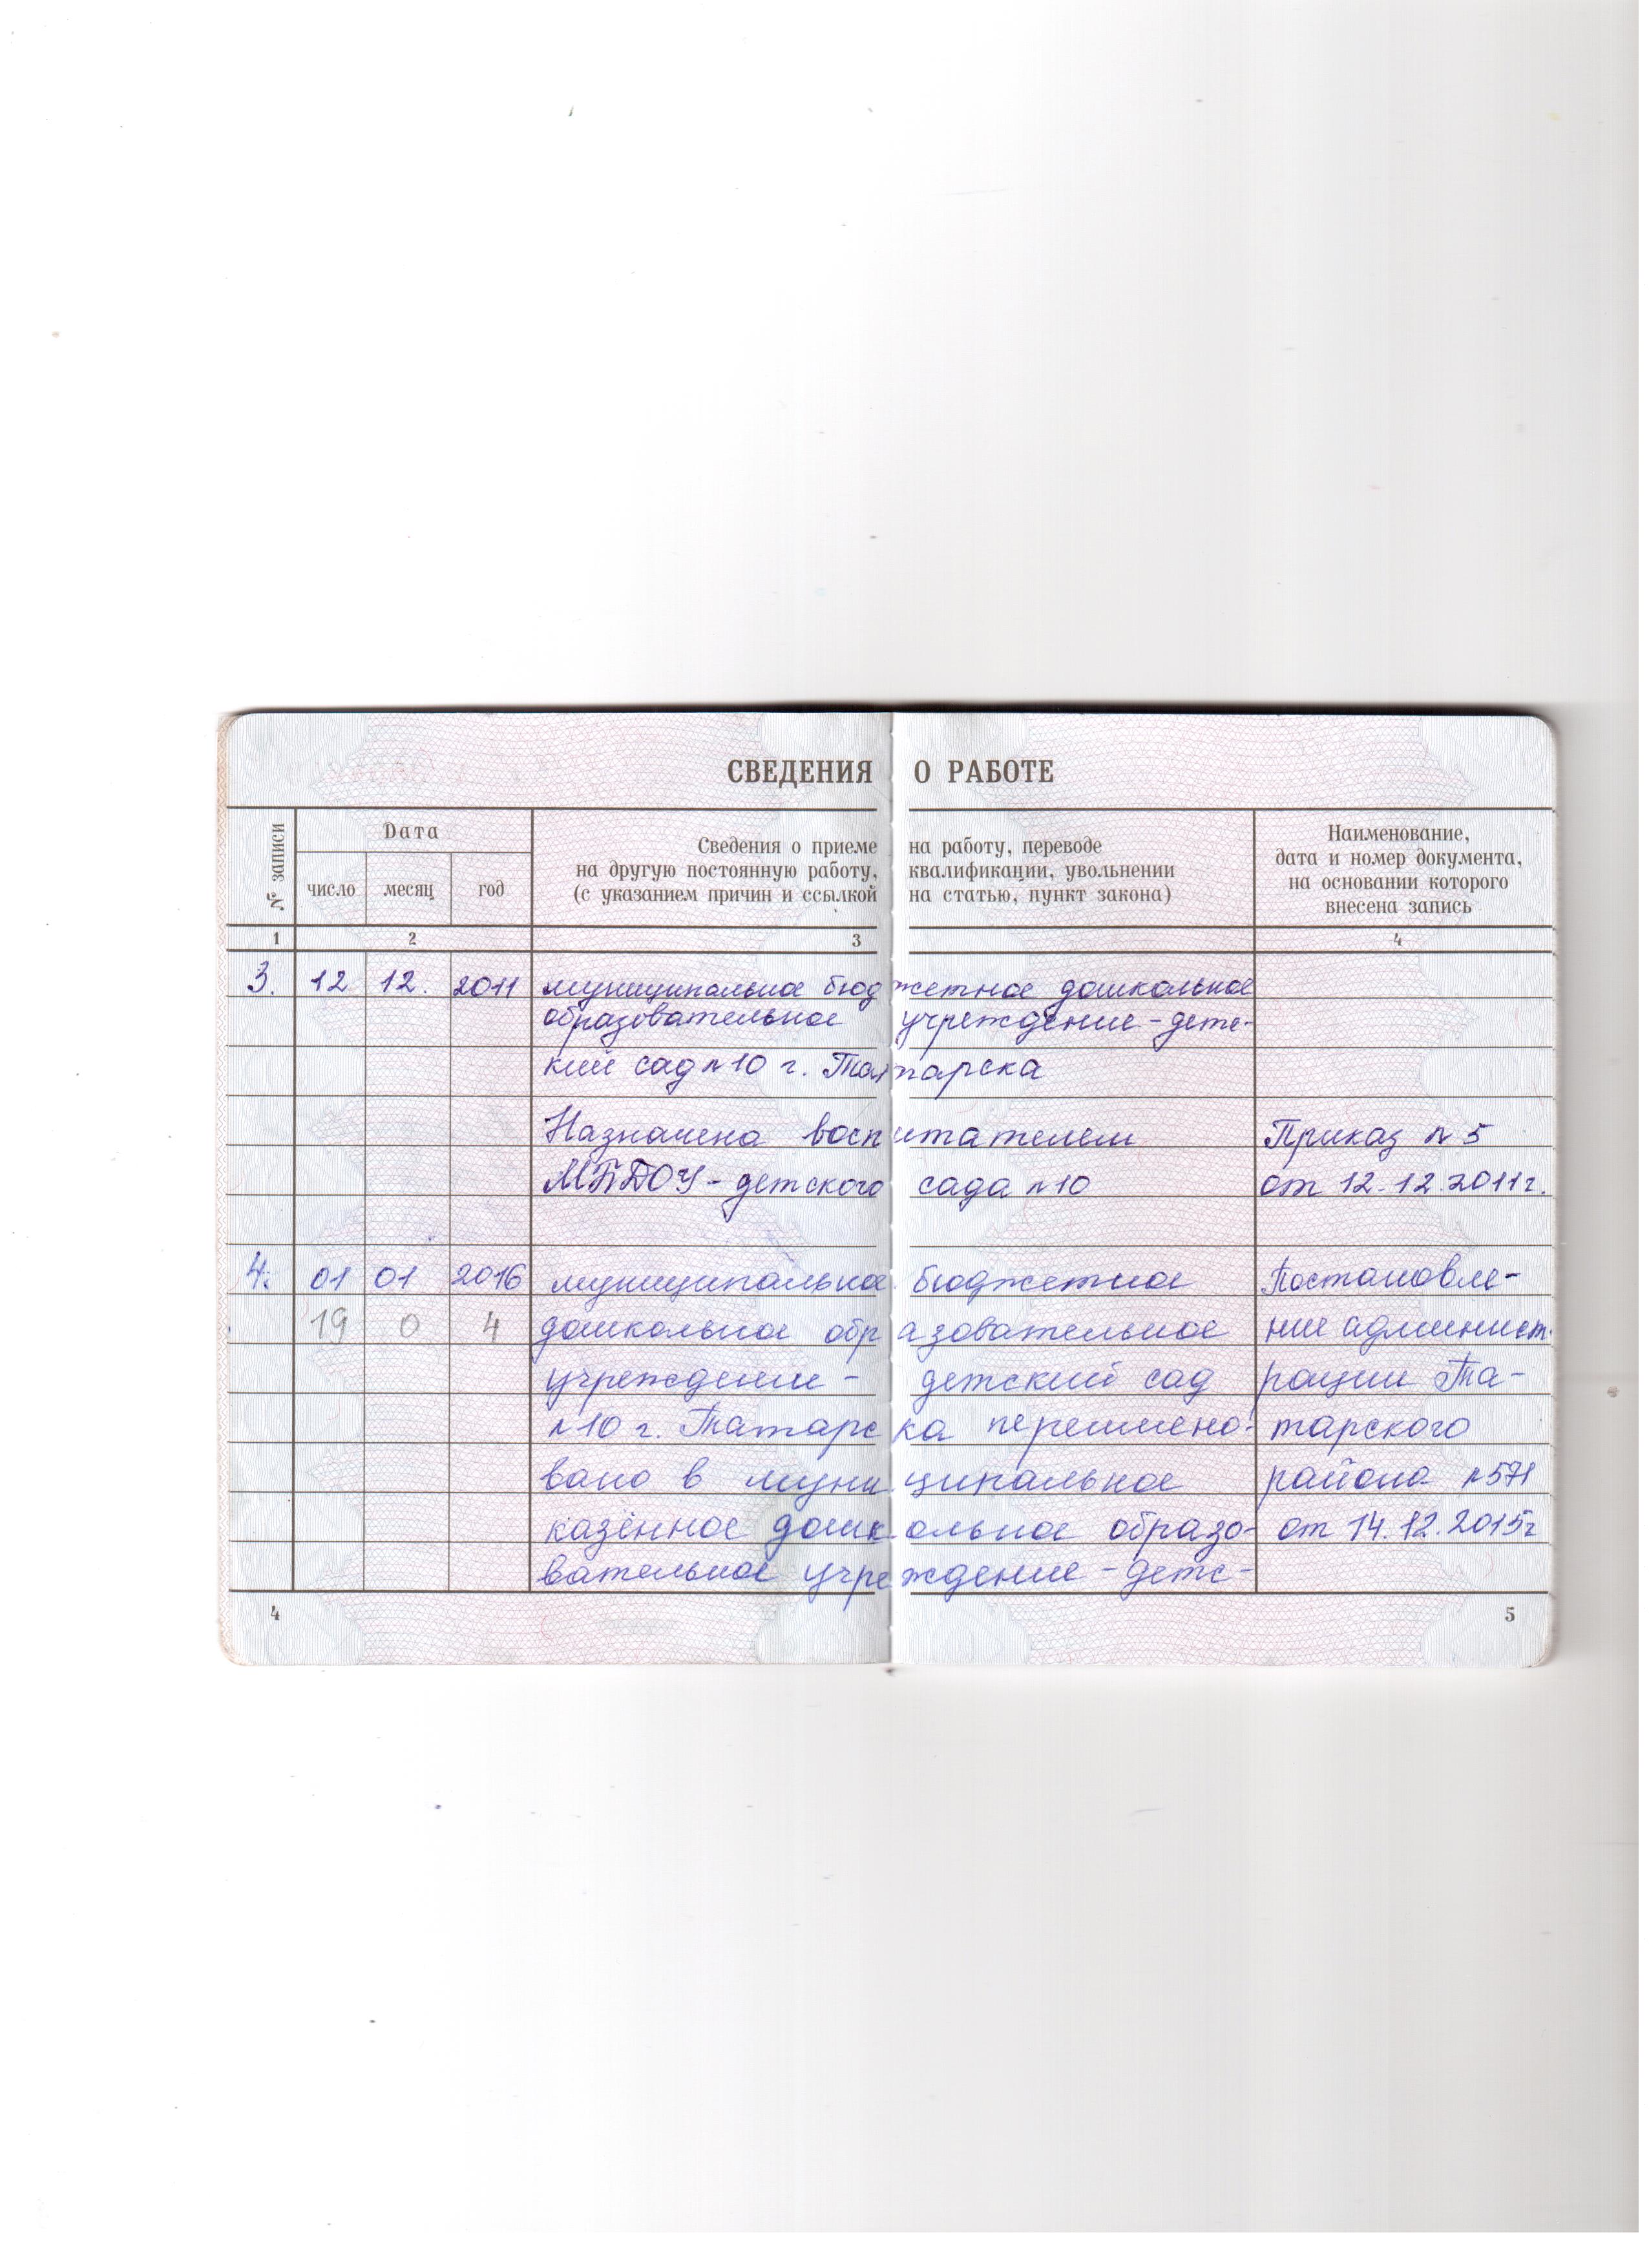 СВЕДЕНИЯ О РАБОТЕ
№ записи
Дата
число месяц год
Сведения о приеме на работу, переводе
на другую постоянную работу, квалификации, увольнении
(с указанием причин и ссылкой на статью, пункт закона)
Наименование,
дата и номер документа,
на основании которого
внесена запись
1 2 3 4
3. 12 12. 2011 муниципальное бюджетное дошкольное
образовательное учреждение - детс-
кий сад №10 г. Татарска
Назначена воспитателем Приказ №5
МБДОУ - детского сада №10 от 12.12.2011г.
4. 01 01 2016 муниципальное бюджетное Постановле-
19 0 4 дошкольное образовательное ние админист-
учреждение - детский сад рации Та-
№10 г. Татарска переимено- тарского
вано в муниципальное района №571
казённое дошкольное образо- от 14.12.2015г
вательное учреждение - детс-
4 5